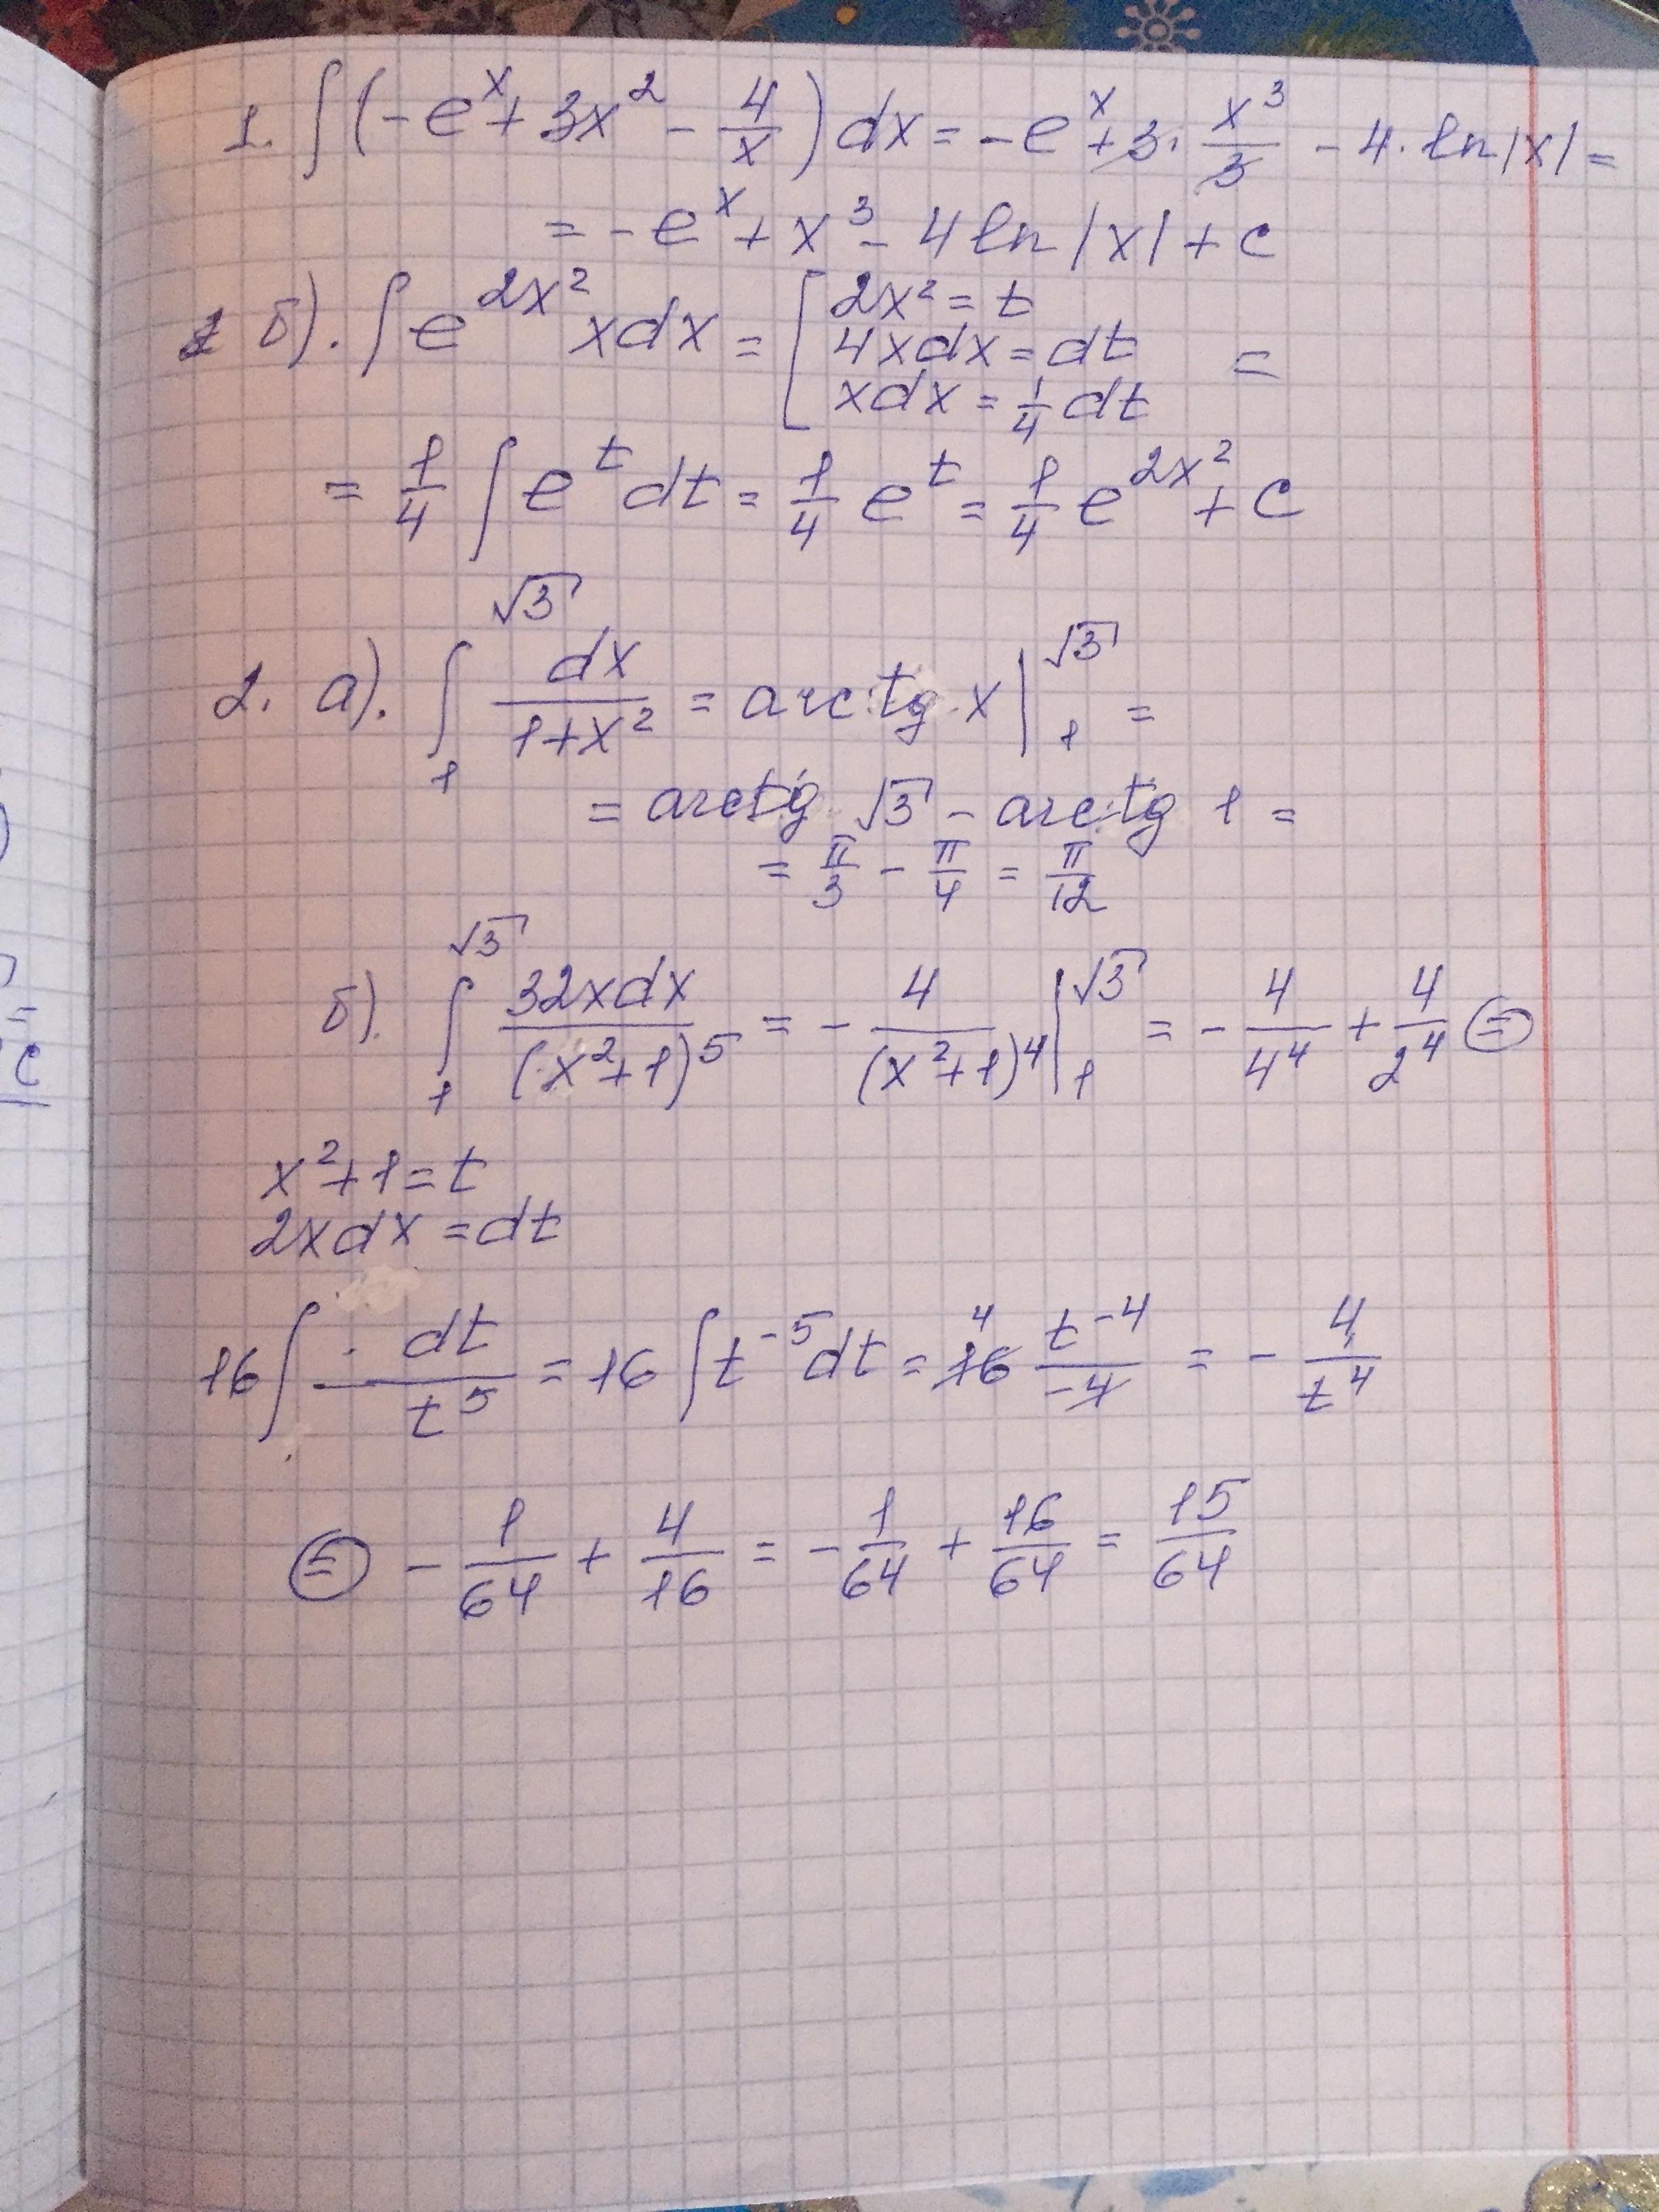 1. ∫(-e^x + 3x^2 - 4/x) dx = -e^x + 3 · x^3/3 - 4 · ln|x| =
= -e^x + x^3 - 4 ln|x| + c
б). ∫ e^{2x^2} x dx = [ 2x^2 = t
4x dx = dt =
x dx = 1/4 dt
= 1/4 ∫ e^t dt = 1/4 e^t = 1/4 e^{2x^2} + c
2. а). ∫_1^{√3} dx/(1+x^2) = arctg x |_1^{√3} =
= arctg √3 - arctg 1 =
= π/3 - π/4 = π/12
б). ∫_1^{√3} 32x dx/(x^2+1)^5 = - 4/(x^2+1)^4 |_1^{√3} = - 4/4^4 + 4/2^4 ⊜
x^2 + 1 = t
2x dx = dt
16 ∫ dt/t^5 = 16 ∫ t^{-5} dt = 16 4 t^{-4}/-4 = - 4/t^4
⊜ - 1/64 + 4/16 = - 1/64 + 16/64 = 15/64
=
c